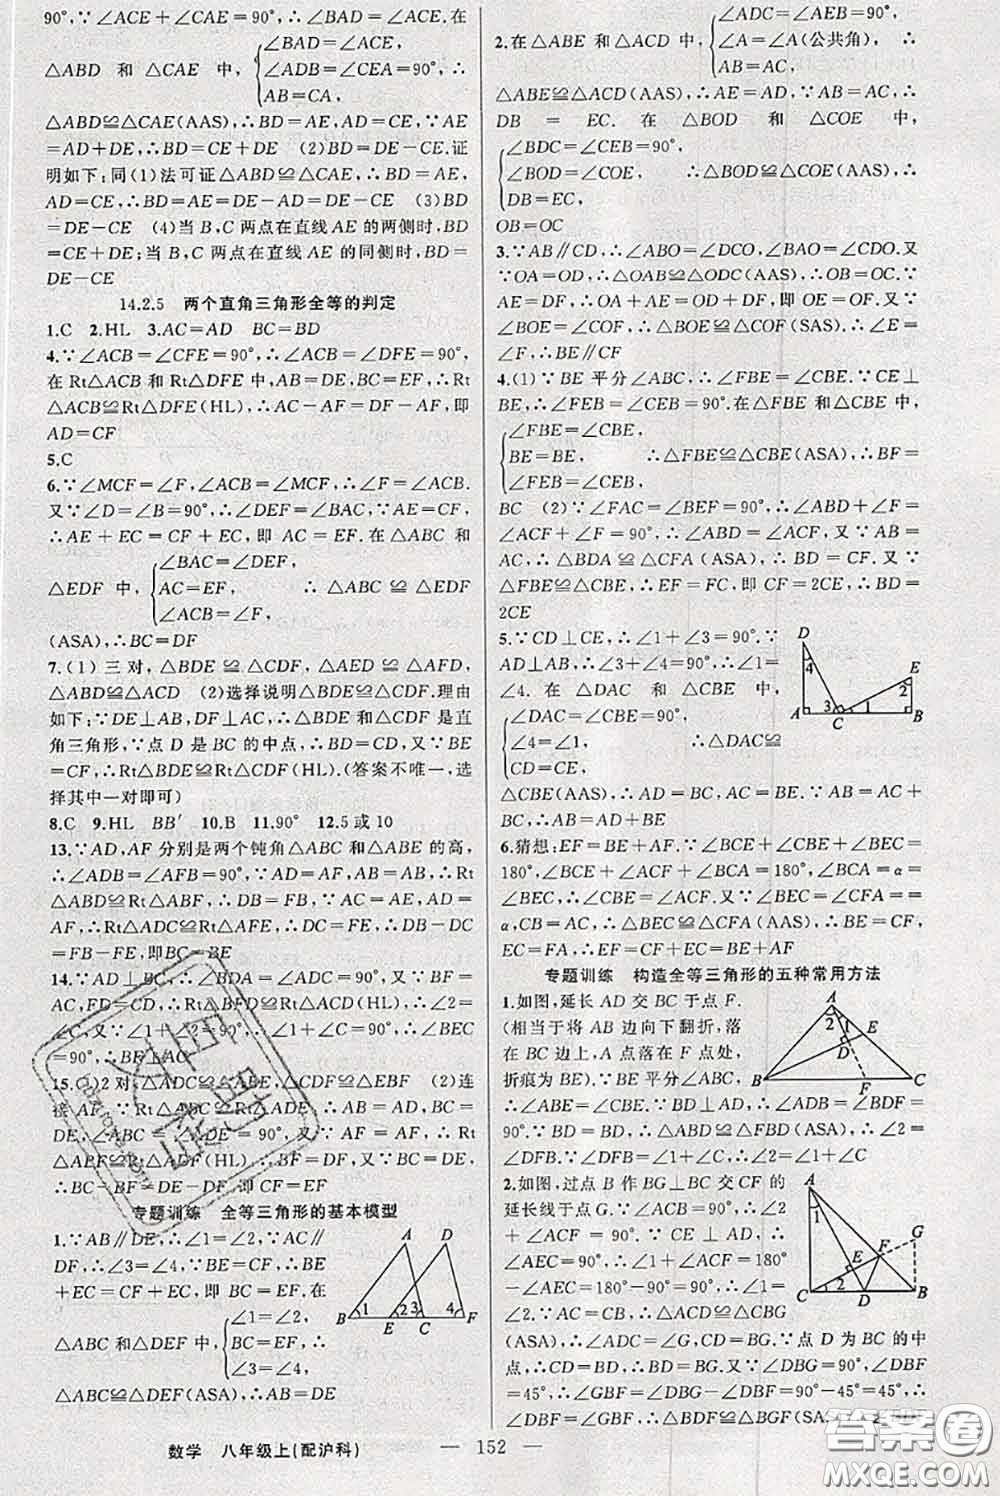 90°,∵∠ACE+∠CAE=90°,∴∠BAD=∠ACE.在
△ABD 和 △CAE 中,
∠BAD=∠ACE,
∠ADB=∠CEA=90°,∴
AB=CA,
△ABD≌△CAE(AAS),∴BD=AE,AD=CE,∵AE
=AD+DE,∴BD=CE+DE (2)BD=DE-CE.证
明如下:同(1)法可证△ABD≌△CAE,∴BD=AE,
AD=CE,∴BD=AE=DE-AD=DE-CE (3)BD
=DE-CE (4)当B,C两点在直线AE的两侧时,BD
=CE+DE;当B,C两点在直线AE的同侧时,BD=
DE-CE
14.2.5 两个直角三角形全等的判定
1.C 2.HL 3.AC=AD BC=BD
4.∵∠ACB=∠CFE=90°,∴∠ACB=∠DFE=90°,
在Rt△ACB和Rt△DFE中,AB=DE,BC=EF,∴Rt
△ACB≌Rt△DFE(HL),∴AC-AF=DF-AF,即
AD=CF
5.C
6.∵∠MCF=∠F,∠ACB=∠MCF,∴∠F=∠ACB.
又∵∠D=∠B=90°,∴∠DEF=∠BAC,∵AE=CF,
∴AE+EC=CF+EC,即AC=EF.在△ABC和
△EDF中,
∠BAC=∠DEF,
AC=EF, ∴△ABC≌△EDF
∠ACB=∠F,
(ASA),∴BC=DF
7.(1)三对,△BDE≌△CDF,△AED≌△AFD,
△ABD≌△ACD (2)选择说明△BDE≌△CDF.理由
如下:∵DE⊥AB,DF⊥AC,∴△BDE和△CDF是直
角三角形,∵点D是BC的中点,∴BD=CD,又∵BE
=CF,∴Rt△BDE≌Rt△CDF(HL).(答案不唯一,选
择其中一对即可)
8.C 9.HL BB′ 10.B 11.90° 12.5或10
13.∵AD,AF分别是两个钝角△ABC和△ABE的高,
∴∠ADB=∠AFB=90°,∵AD=AF,AB=AB,∴Rt
△ABD≌Rt△ABF,∴DB=FB,∵AC=AE,AD=
AF,∴Rt△ADC≌Rt△AFE,∴DC=FE,∴DB-DC
=FB-FE,即BC=BE
14.∵AD⊥BC,∴∠BDA=∠ADC=90°,又∵BF=
AC,FD=CD,∴Rt△BFD≌Rt△ACD(HL),∴∠2=
∠C,又∵∠1+∠2=90°,∴∠1+∠C=90°,∴∠BEC
=90°,∴BF⊥AC
15.(1)2对,△ADC≌△ABE,△CDF≌△EBF (2)连
接AF.∵Rt△ABC≌Rt△ADE,∴AB=AD,BC=
DE,∠ABC=∠ADE=90°,又∵AF=AF,∴Rt
△ABF≌Rt△ADF(HL),∴BF=DF,又∵BC=DE,∴
BC-BF=DE-DF,即CF=EF
专题训练 全等三角形的基本模型
1.∵AB∥DE,∴∠1=∠2,∵AC∥
DF,∴∠3=∠4,∵BE=CF,∴BE
+EC=CF+EC,即BC=EF,在
△ABC和△DEF中,
∠1=∠2,
BC=EF,∴
∠3=∠4,
△ABC≌△DEF(ASA),∴AB=DE
A D
B 1 2 3 4 F
E C
2.在△ABE和△ACD中,
∠ADC=∠AEB=90°,
∠A=∠A(公共角), ∴
AB=AC,
△ABE≌△ACD(AAS),∴AE=AD,∵AB=AC,∴
DB=EC.在△BOD和△COE中,
∠BDC=∠CEB=90°,
∠BOD=∠COE, ∴△BOD≌△COE(AAS),∴
DB=EC,
OB=OC
3.∵AB∥CD,∴∠ABO=∠DCO,∠BAO=∠CDO.又
∵OA=OD,∴△OAB≌△ODC(AAS),∴OB=OC.∵
AE=DF,∴OA+AE=OD+DF,即OE=OF,又
∵∠BOE=∠COF,∴△BOE≌△COF(SAS),∴∠E=
∠F,∴BE∥CF
4.(1)∵BE平分∠ABC,∴∠FBE=∠CBE.∵CE⊥
BE,∴∠FEB=∠CEB=90°.在△FBE和△CBE中,
∠FBE=∠CBE,
BE=BE, ∴△FBE≌△CBE(ASA),∴BF=
∠FEB=∠CEB,
BC (2)∵∠FAC=∠BEF=90°,∴∠ABD+∠F=
∠ACF+∠F=90°,∴∠ABD=∠ACF,又∵AB=
AC,∴△BDA≌△CFA(ASA),∴BD=CF.又∵
△FBE≌△CBE,∴EF=FC,即CF=2CE,∴BD=
2CE
5.∵CD⊥CE,∴∠1+∠3=90°.∵
AD⊥AB,∴∠3+∠4=90°,∴∠1=
∠4.在△DAC和△CBE中,
∠DAC=∠CBE=90°,
∠4=∠1, ∴△DAC≌
CD=CE,
△CBE(AAS),∴AD=BC,BE=AC.∵AB=AC+
BC,∴AB=AD+BE
D 4 E 2
A 3 C 1 B
6.猜想:EF=BE+AF.∵∠BCE+∠CBE+∠BEC=
180°,∠BCE+∠ACF+∠BCA=180°,∠BCA=α=
∠BEC,∴∠CBE=∠ACF,又∵∠BEC=∠CFA=
α,CB=CA,∴△BEC≌△CFA(AAS),∴BE=CF,
EC=FA,∴EF=CF+EC=BE+AF
专题训练 构造全等三角形的五种常用方法
1.如图,延长AD交BC于点F.
(相当于将AB边向下翻折,落
在BC边上,A点落在F点处,
折痕为BE).∵BE平分∠ABC,
∴∠ABE=∠CBE,∵BD⊥AD,∴∠ADB=∠BDF=
90°.∵BD=BD,∴△ABD≌△FBD(ASA),∴∠2=
∠DFB.又∵∠DFB=∠1+∠C,∴∠2=∠1+∠C
A
2 1 E
D
B F C
2.如图,过点B作BG⊥BC交CF的
延长线于点G.∵∠ACB=90°,∠2
+∠ACF=90°.∵CE⊥AD,∴
∠AEC=90°,∴∠1+∠ACF=180°
-∠AEC=180°-90°=90°,∴∠1=
∠2.∵AC=CB,∴△ACD≌△CBG
(ASA),∴∠ADC=∠G,CD=BG.∵点D为BC的中
点,∴CD=BD=BG.又∵∠DBG=90°,∠DBF
=45°,∴∠GBF=∠DBG-∠DBF=90°-45°=45°,∴
∠DBF=∠GBF.∵BF=BF,
A
1
F G
E
2
C D B
数学 八年级上(配沪科) — 152 —
答案圈
MXQE.COM